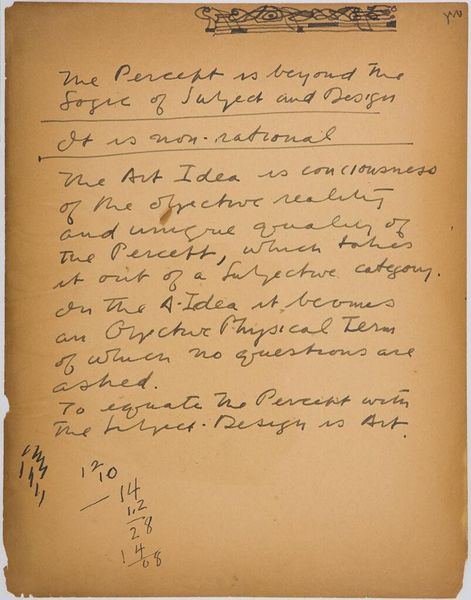 The Percept is beyond the
Logic of Subject and Design
It is non-rational
The Art Idea is conciousness
of the objective reality
and unique quality of
the Percept, which takes
it out of a Subjective category.
In the A-Idea it becomes
an Objective Physical Term
of which no questions are
asked.
To equate the Percept with
the Subject-Design is Art.
120
14
1.2
28
14
08